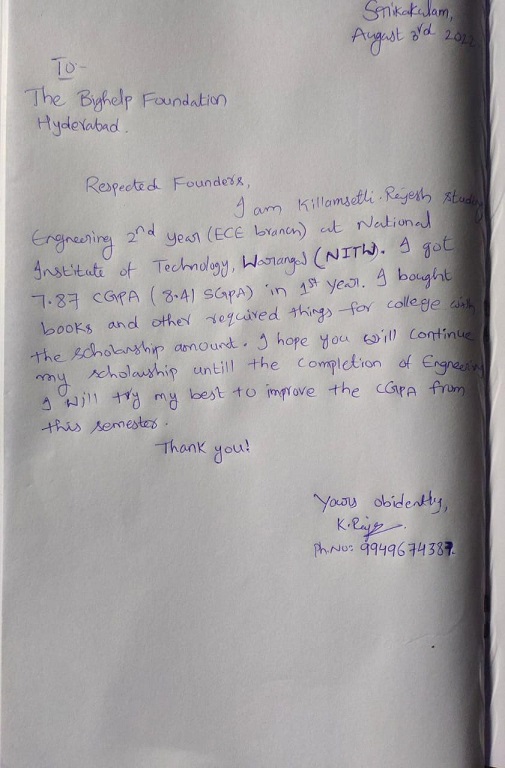 Srikakulam,
August 3rd 2022
To:-
The Bighelp Foundation
Hyderabad.
Respected Founders,
I am Killamsetti.Rajesh study
Engneering 2nd year (ECE branch) at National
Institute of Technology, Warangal (NITW). I got
7.87 CGPA (8.41 SGPA) in 1st year. I bought
books and other required things for college with
the scholarship amount. I hope you will continue
my scholarship untill the completion of Engneering
I will try my best to improve the CGPA from
this semester.
Thank you!
Yours obidently,
K.Rajesh
Ph.No: 9949674387.